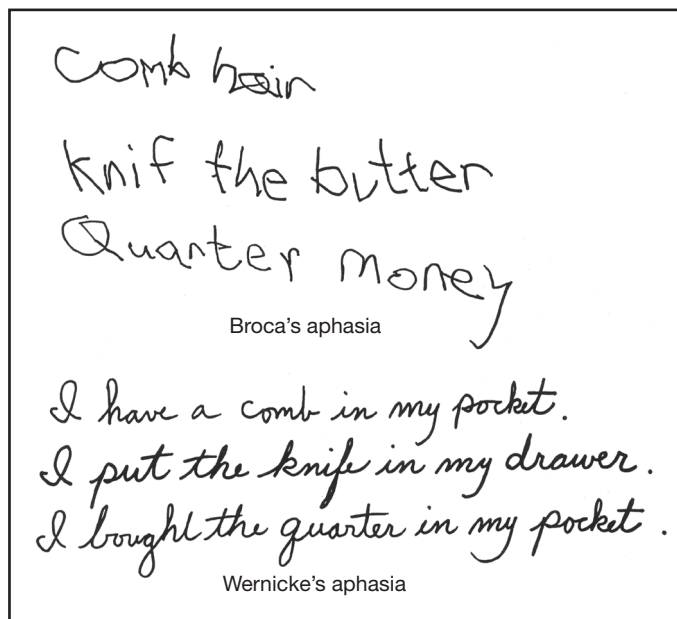 Comb hair
Knif the butter
Quarter money
Broca's aphasia
I have a comb in my pocket.
I put the knife in my drawer.
I bought the quarter in my pocket.
Wernicke's aphasia